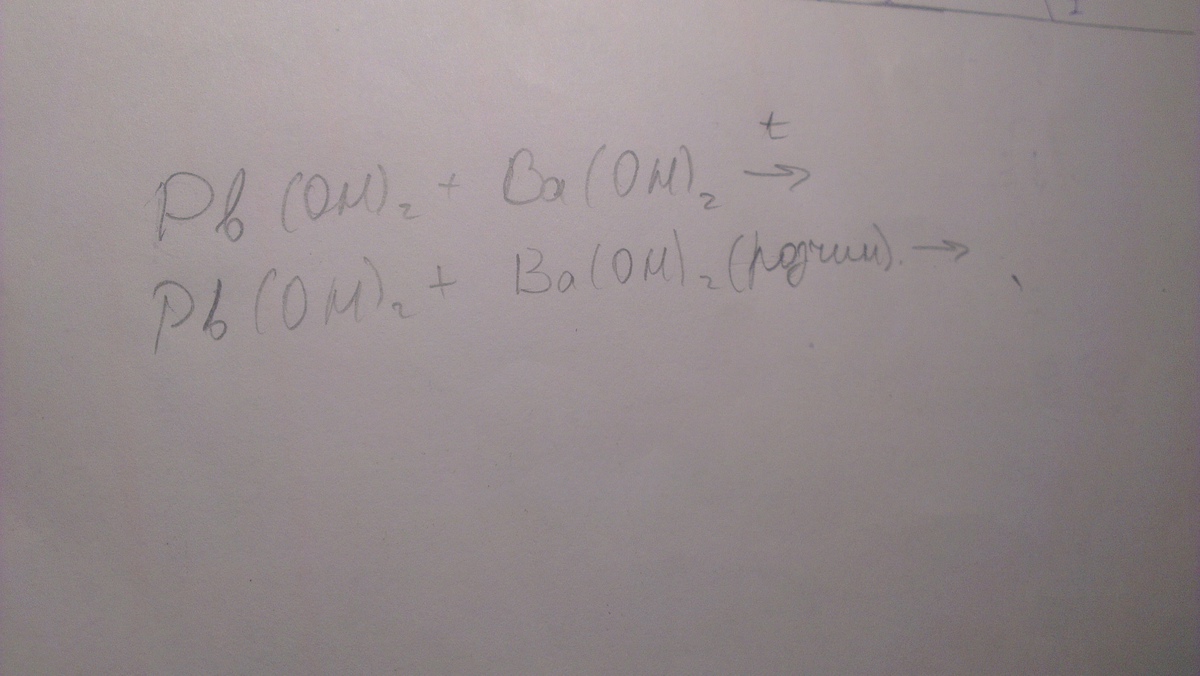 Pb(OH)₂ + Ba(OH)₂ →ᵗ
Pb(OH)₂ + Ba(OH)₂ (розчин). →